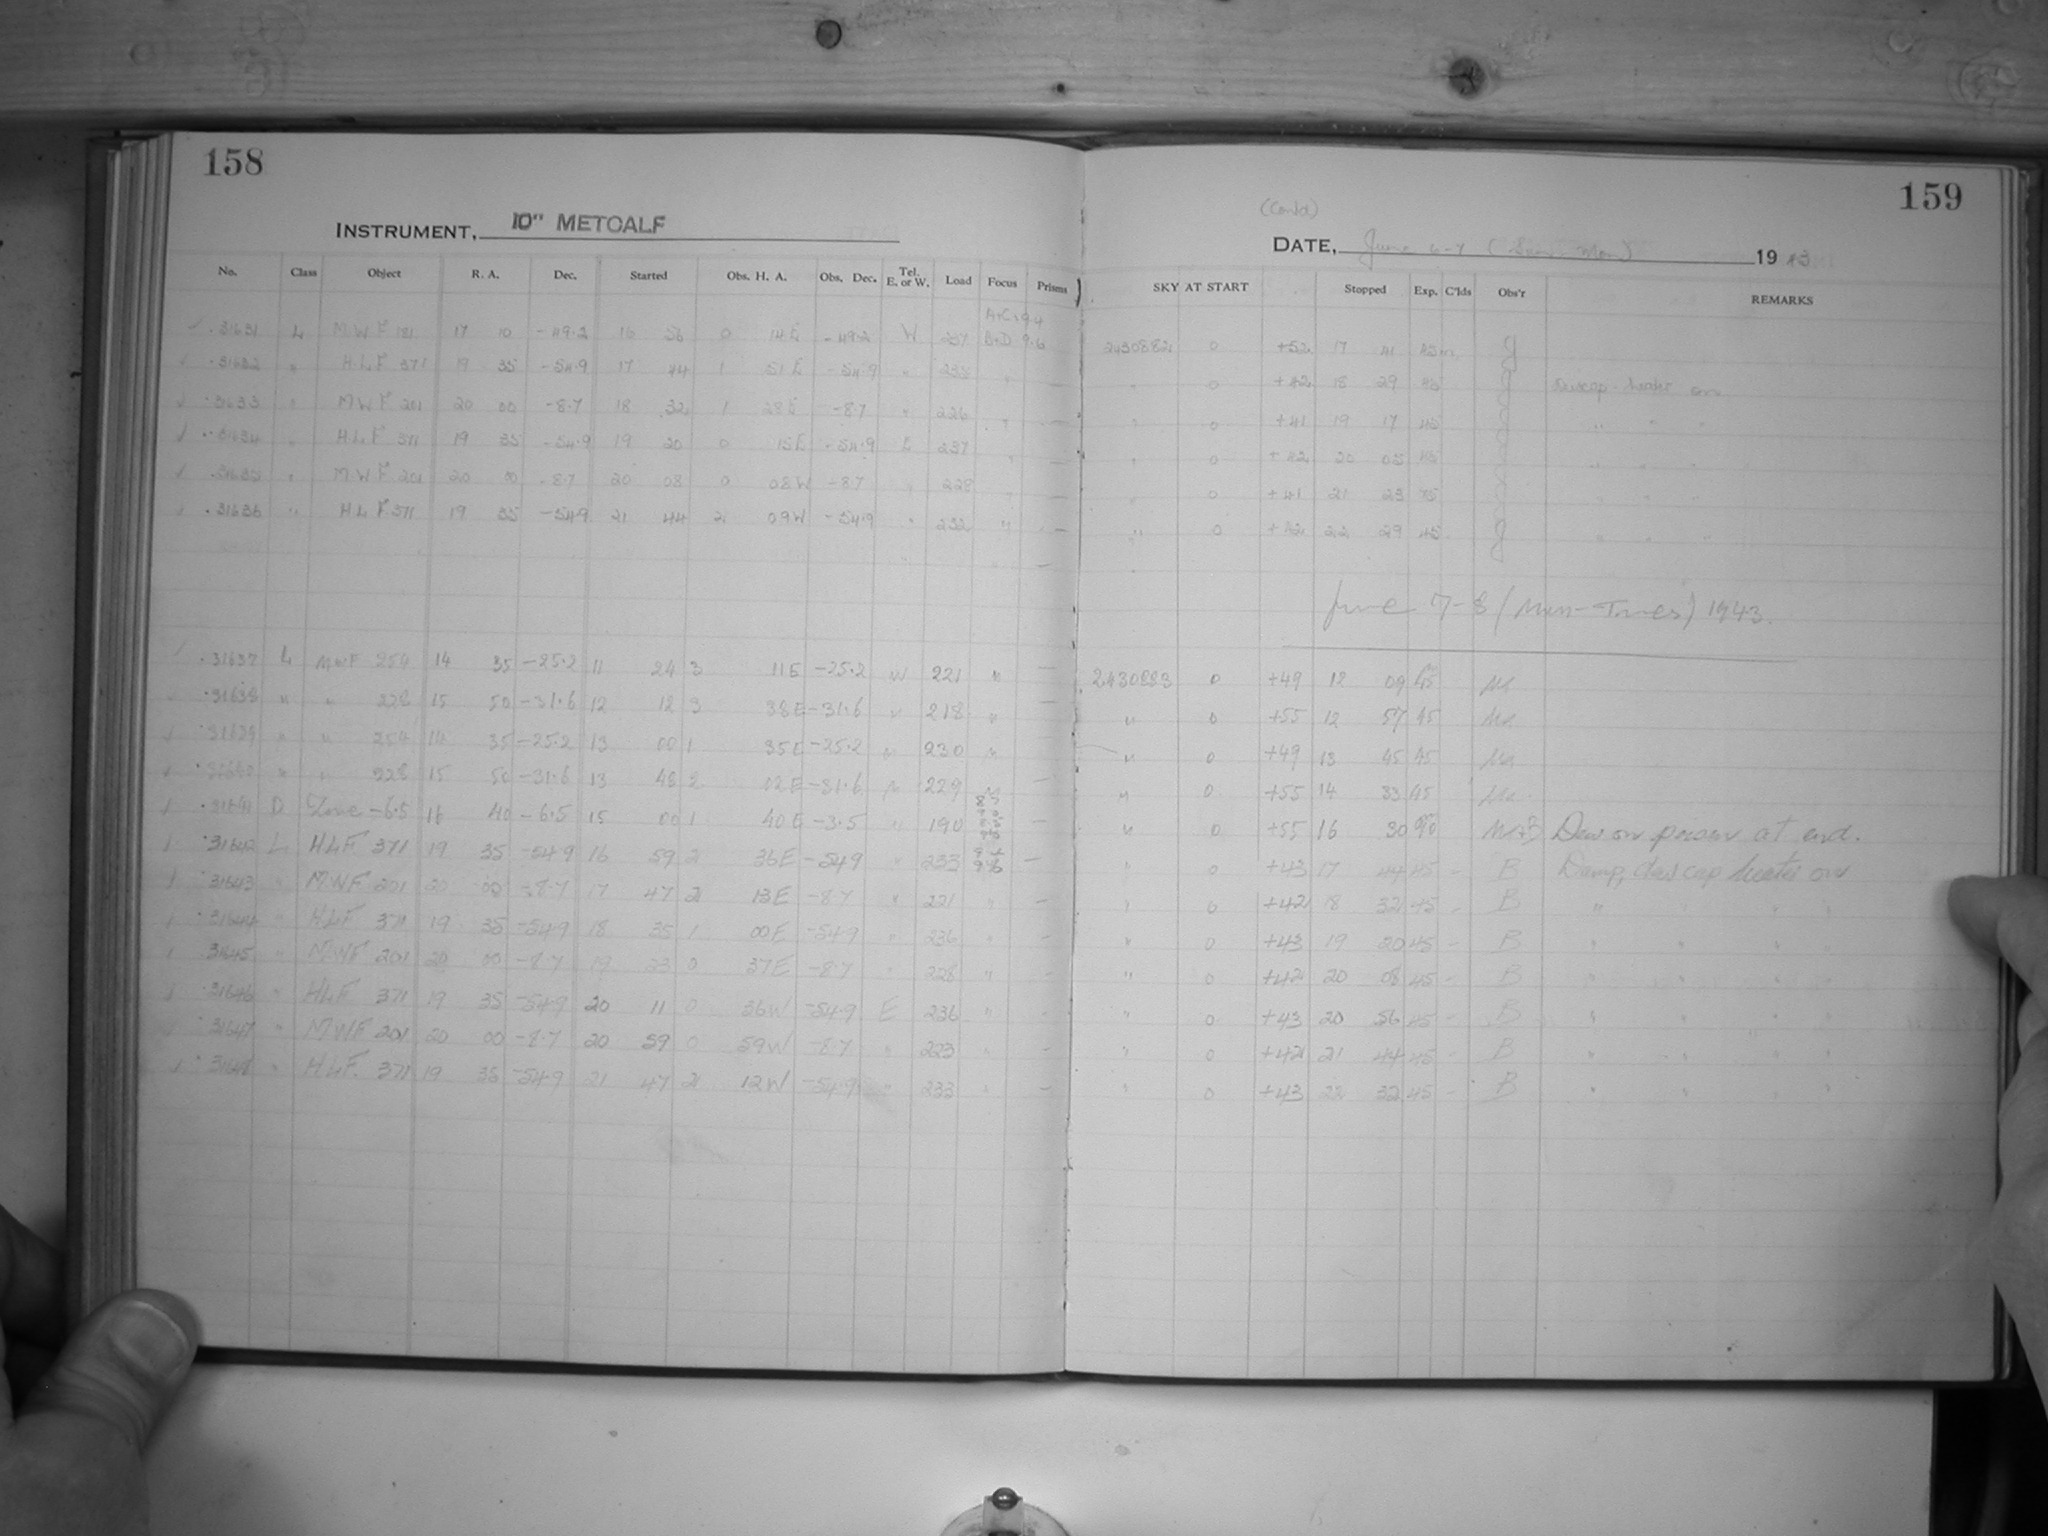 158
159
INSTRUMENT, 10" METCALF
(Contd)
DATE, June 6-7 (Sun-Mon) 1943
No. Class Object R. A. Dec. Started Obs. H. A. Obs. Dec. Tel. E. or W. Load Focus Prisms SKY AT START Stopped Exp. C'lds Obs'r REMARKS
A+C 9.4
31631 L MWF 181 17 10 -49.2 16 56 0 14E -49.2 W 237 B+D 9.6 2430882 0 +52 17 41 45m
31632 " HLF 371 19 35 -54.9 17 44 1 51E -54.9 " 233 " — " 0 +42 18 29 45 dewcap heater on
31633 " MWF 201 20 00 -8.7 18 32 1 28E -8.7 " 226 " — " 0 +41 19 17 45 " " "
31634 " HLF 371 19 35 -54.9 19 20 0 15E -54.9 E 237 " — " 0 +42 20 05 45 " " "
31635 " MWF 201 20 00 -8.7 20 08 0 08W -8.7 " 228 " — " 0 +41 21 23 75 " " "
31636 " HLF 371 19 35 -54.9 21 44 2 09W -54.9 " 232 " — " 0 +42 22 29 45 " " "
June 7-8 (Mon-Tues) 1943.
31637 L MWF 254 14 35 -25.2 11 24 3 11E -25.2 W 221 " — 2430883 0 +49 12 09 45
31638 " " 228 15 50 -31.6 12 12 3 38E -31.6 " 218 " — " 0 +55 12 57 45
31639 " " 254 14 35 -25.2 13 00 1 35E -25.2 " 230 " — " 0 +49 13 45 45
31640 " " 228 15 50 -31.6 13 48 2 02E -31.6 " 229 " — " 0 +55 14 33 45
31641 D Zone -6.5 16 40 -6.5 15 00 1 40E -3.5 " 190 — " 0 +55 16 30 90 Dew on prism at end.
31642 L HLF 371 19 35 -54.9 16 59 2 36E -54.9 " 233 9.4 9.6 — " 0 +43 17 44 45 - B Damp, dewcap heater on
31643 " MWF 201 20 00 -8.7 17 47 2 13E -8.7 " 221 " — " 0 +42 18 32 45 - B " " " "
31644 " HLF 371 19 35 -54.9 18 35 1 00E -54.9 " 236 " — " 0 +43 19 20 45 - B " " " "
31645 " MWF 201 20 00 -8.7 19 23 0 37E -8.7 " 228 " — " 0 +42 20 08 45 - B " " " "
31646 " HLF 371 19 35 -54.9 20 11 0 36W -54.9 E 236 " — " 0 +43 20 56 45 - B " " " "
31647 " MWF 201 20 00 -8.7 20 59 0 59W -8.7 " 223 " — " 0 +42 21 44 45 - B " " " "
31648 " HLF. 371 19 35 -54.9 21 47 2 12W -54.9 " 233 " — " 0 +43 22 32 45 - B " " " "